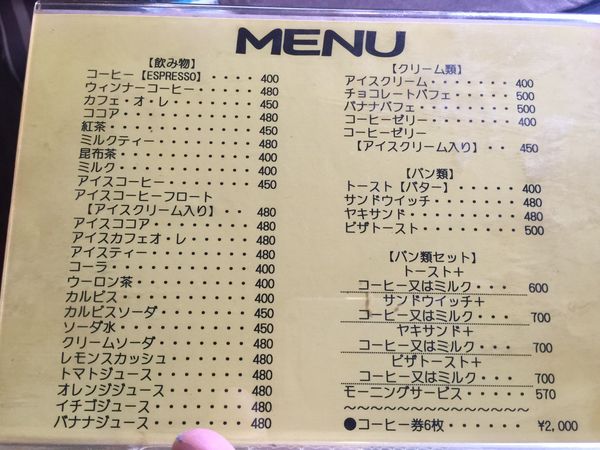 MENU
【飲み物】
コーヒー【ESPRESSO】・・・・400
ウィンナーコーヒー・・・・・480
カフェ・オ・レ・・・・・・・450
ココア・・・・・・・・・・・480
紅茶・・・・・・・・・・・・450
ミルクティー・・・・・・・・480
昆布茶・・・・・・・・・・・400
ミルク・・・・・・・・・・・400
アイスコーヒー・・・・・・・450
アイスコーヒーフロート
【アイスクリーム入り】・・480
アイスココア・・・・・・・・480
アイスカフェオ・レ・・・・・480
アイスティー・・・・・・・・480
コーラ・・・・・・・・・・・400
ウーロン茶・・・・・・・・・400
カルピス・・・・・・・・・・400
カルピスソーダ・・・・・・・450
ソーダ水・・・・・・・・・・450
クリームソーダ・・・・・・・480
レモンスカッシュ・・・・・・480
トマトジュース・・・・・・・480
オレンジジュース・・・・・・480
イチゴジュース・・・・・・・480
バナナジュース・・・・・・・480
【クリーム類】
アイスクリーム・・・・・・・400
チョコレートパフェ・・・・・500
バナナパフェ・・・・・・・・500
コーヒーゼリー・・・・・・・400
コーヒーゼリー
【アイスクリーム入り】・・450
【パン類】
トースト【バター】・・・・・400
サンドウイッチ・・・・・・・480
ヤキサンド・・・・・・・・・480
ピザトースト・・・・・・・・500
【パン類セット】
トースト＋
コーヒー又はミルク・・・600
サンドウイッチ＋
コーヒー又はミルク・・・700
ヤキサンド＋
コーヒー又はミルク・・・700
ピザトースト＋
コーヒー又はミルク・・・700
モーニングサービス・・・・・570
～～～～～～～～～～～～～～
●コーヒー券6枚・・・・・・¥2,000